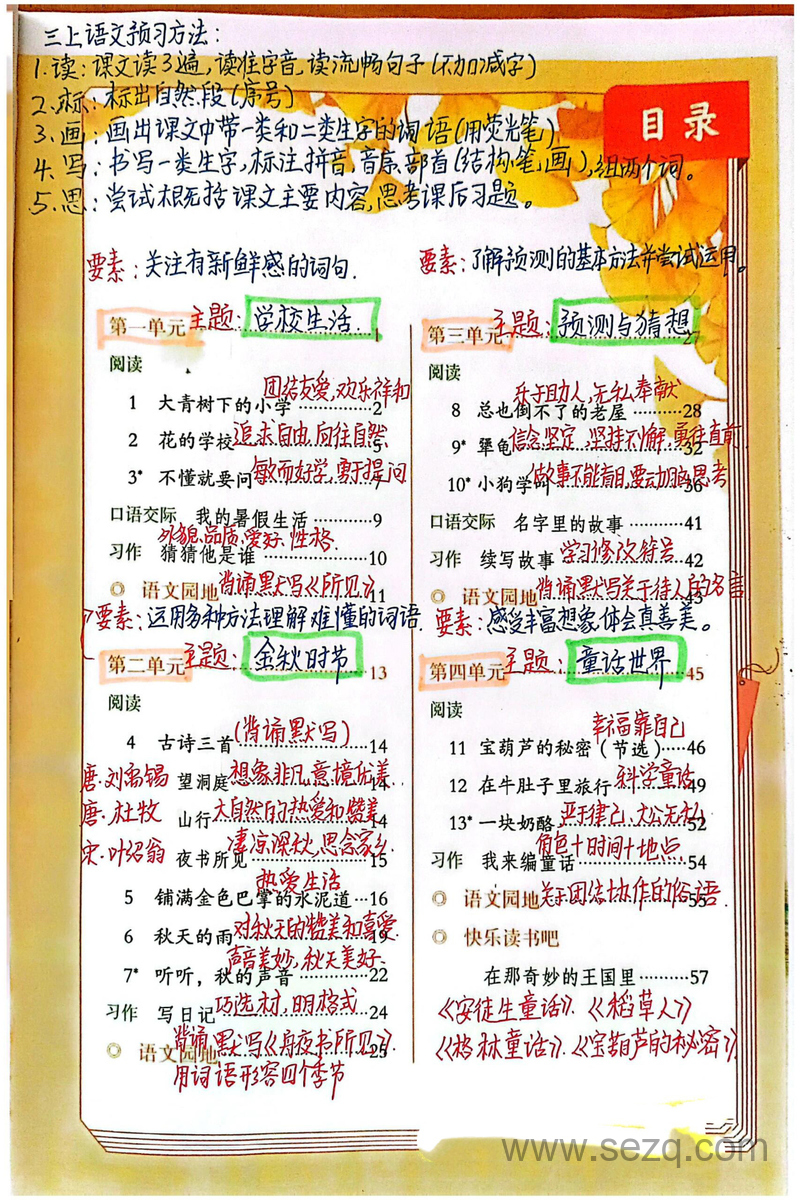 三上语文预习方法：
1.读：课文读3遍，读准字音，读流畅句子（不加减字）
2.标：标出自然段（序号）
3.画：画出课文中带一类和二类生字的词语（用荧光笔）
4.写：书写一类生字，标注拼音，音序，部首（结构，笔画），组两个词。
5.思：尝试概括课文主要内容，思考课后习题。
目录
要素：关注有新鲜感的词句．
第一单元 主题：学校生活 1
阅读
团结友爱，欢乐祥和
1 大青树下的小学 2
2 花的学校 追求自由，向往自然 5
3* 不懂就要问 敏而好学，勇于提问 7
口语交际 我的暑假生活 9
外貌、品质、爱好、性格
习作 猜猜他是谁 10
语文园地 背诵默写《所见》 11
要素：运用多种方法理解难懂的词语．
第二单元 主题：金秋时节 13
阅读
4 古诗三首（背诵默写） 14
唐·刘禹锡 望洞庭 想象非凡，意境优美 14
唐·杜牧 山行 大自然的热爱和赞美 14
宋·叶绍翁 夜书所见 凄凉深秋，思念家乡 15
热爱生活
5 铺满金色巴掌的水泥道 16
6 秋天的雨 对秋天的赞美和喜爱 19
声音美妙，秋天美好
7* 听听，秋的声音 22
习作 写日记 巧选材，明格式 24
语文园地 背诵默写《舟夜书所见》 25
用词语形容四个季节
要素：了解预测的基本方法并尝试运用。
第三单元 主题：预测与猜想 27
阅读
乐于助人，无私奉献
8 总也倒不了的老屋 28
9* 犟龟 信念坚定，坚持不懈，勇往直前 32
10* 小狗学叫 做事不能盲目，要动脑思考 36
口语交际 名字里的故事 41
习作 续写故事 学习修改符号 42
语文园地 背诵默写关于待人的名言 43
要素：感受丰富想象，体会真善美。
第四单元 主题：童话世界 45
阅读
幸福靠自己
11 宝葫芦的秘密（节选） 46
12 在牛肚子里旅行 科学童话 49
13* 一块奶酪 严于律己，大公无私 52
角色+时间+地点
习作 我来编童话 54
语文园地 关于团结协作的俗语 55
快乐读书吧
在那奇妙的王国里 57
《安徒生童话》．《稻草人》
《格林童话》．《宝葫芦的秘密》
www.sezq.com